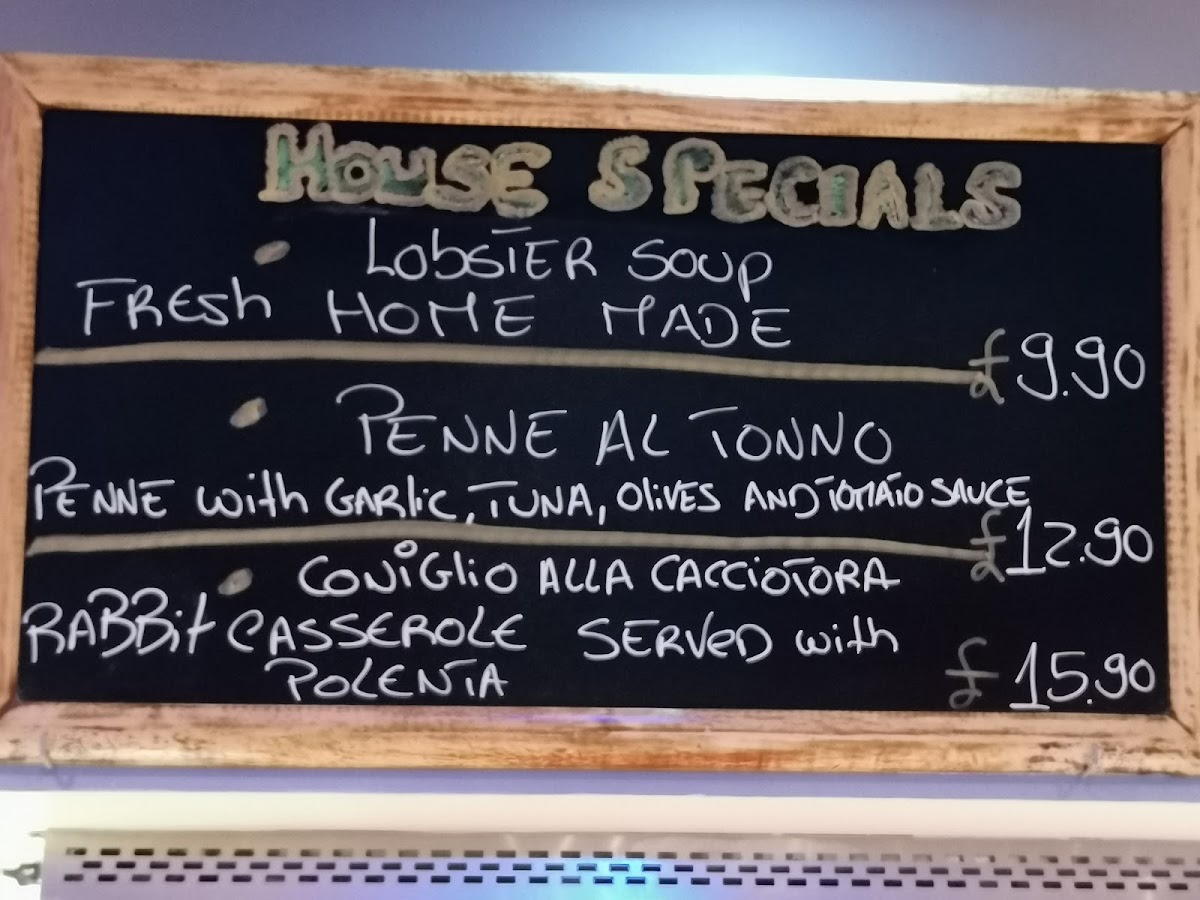 HOUSE SPECIALS
• LOBSTER SOUP
FRESH HOME MADE
£9.90
• PENNE AL TONNO
PENNE with GARLIC, TUNA, OLIVES AND TOMATO SAUCE
£12.90
• CONIGLIO ALLA CACCIOTORA
RABBIT CASSEROLE SERVED with
POLENTA
£15.90